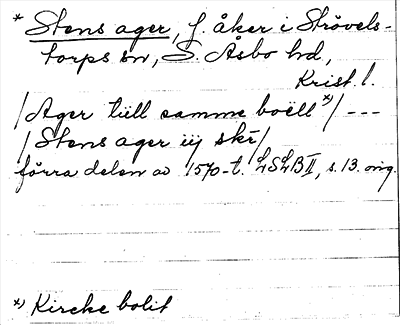 * Stens ager, f. åker i Strövels-
torps sn, S. Åsbo hd,
Krist. l.
/Ager tiill samme boëll *)/ ---
/Stens ager iij skr/
förra delen av 1570-t. LSLB II, s. 13. orig.
*) Kircke bolit